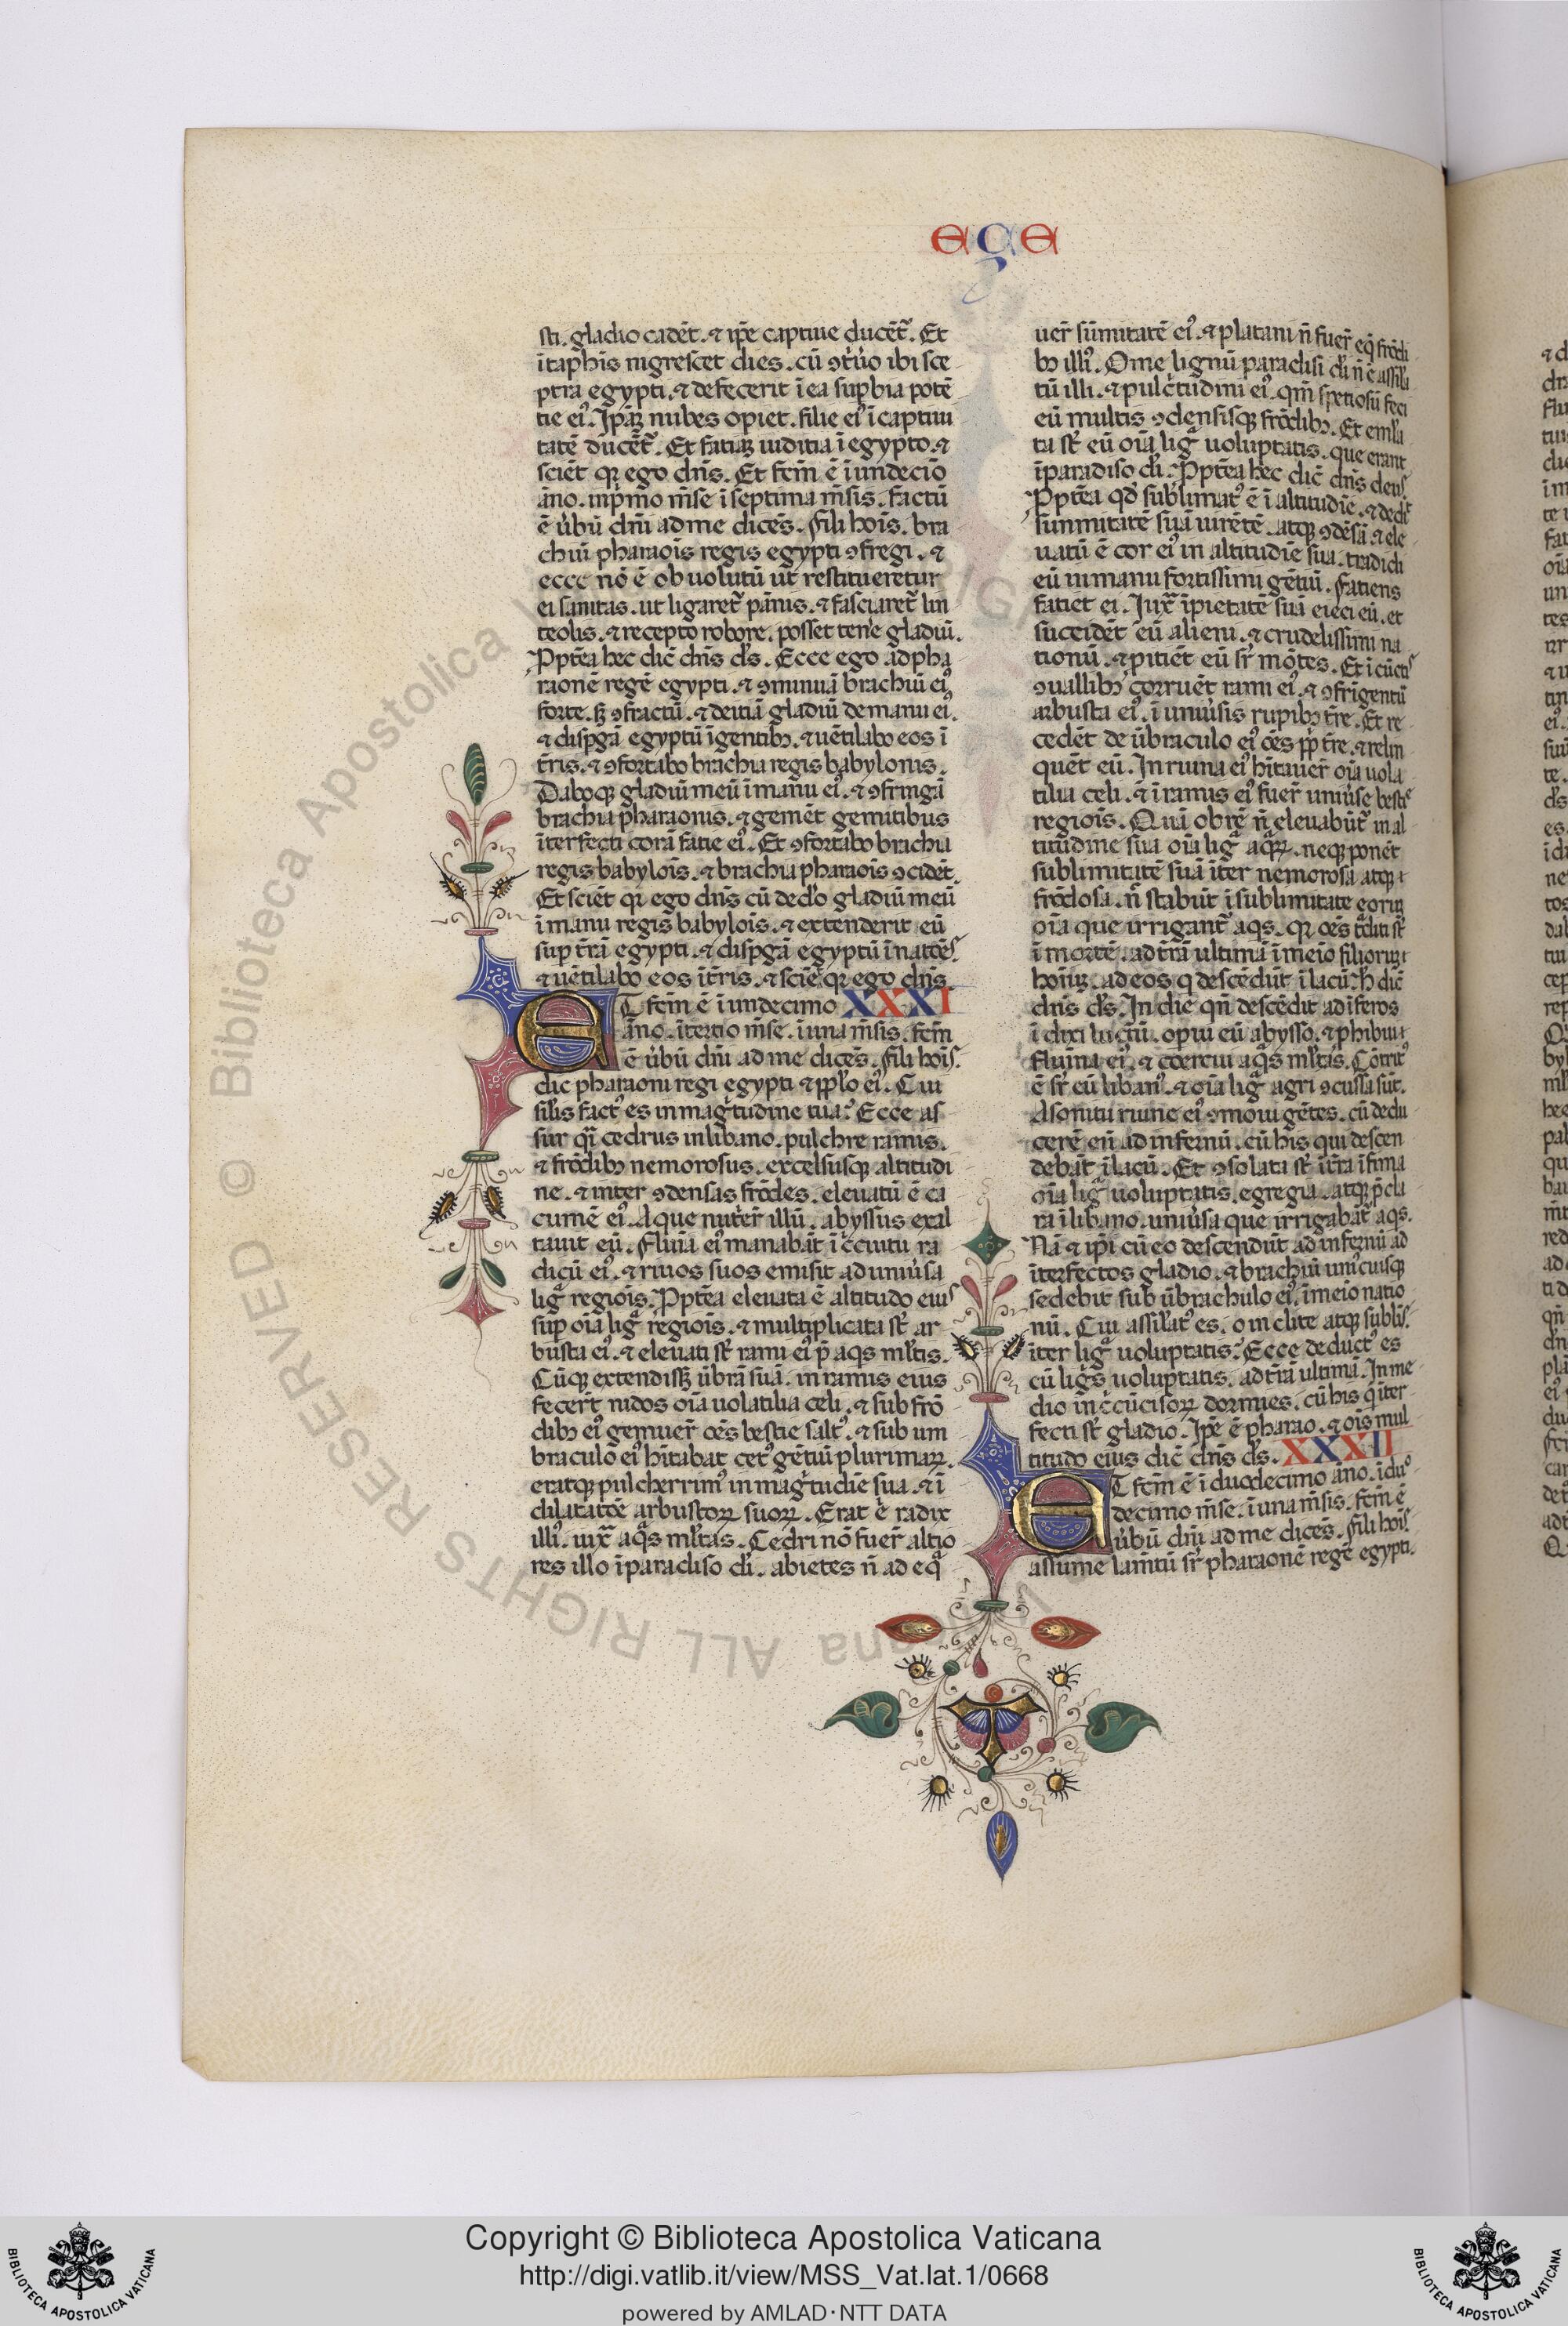 eçe
sti. gladio cadēt. ⁊ ip̄e captiue ducēt᷑. Et
ītaphn̄is nigrescet dies. cū ꝯt͛uo ibi sce
ptra egypti. ⁊ defecerit ī ea suꝑbia potē
tie ei᷒. Ip̄aꝫ nubes opiet. filie ei᷒ ī captiui
tatē ducēt᷑. Et fatiaꝫ iuditia ī egypto. ⁊
sciēt qꝛ ego dn̄s. Et fc̄m ē ī undecīo
āno. inp̄mo m̄se ī septima m̄sis. factū
ē u͛bū dn̄i ad me dicēs. fili hois̄. bra
chiū pharaois̄ regis egypti ꝯfregi. ⁊
ecce nō ē obuolutū ut restitueretur
ei sanitas. ut ligaret᷑ pānis. ⁊ fasciaret᷑ lin
teolis. ⁊ recepto robore. posset ten͛e gladiū.
Ꝓpt̄ea hec dic̄ dn̄s d̄s. Ecce ego ad pha
raonē regē egypti. ⁊ ꝯminuā brachiū ei᷒
forte. sꝫ ꝯfractū. ⁊ deitiā gladiū de manu ei᷒.
⁊ disꝑgā egyptū ī gentibꝫ. ⁊ uētilabo eos ī
t̄ris. ⁊ ꝯfortabo brachia regis babylonis.
Daboqꝫ gladiū meū ī manu ei᷒. ⁊ ꝯfringā
brachia pharaonis. ⁊ gemēt gemitibus
īterfecti corā fatie ei᷒. Et ꝯfortabo brachia
regis babylois̄. ⁊ brachia pharaois̄ ꝯcidēt.
Et sciēt qꝛ ego dn̄s cū ded͛o gladiū meū
ī manu regis babylois̄. ⁊ extenderit eū
suꝑ t̄rā egypti. ⁊ disꝑgā egyptū ī natōēs.
⁊ uētilabo eos ī t̄ris. ⁊ sciēt qꝛ ego dn̄s.
ET fc̄m ē ī undecimo XXXI
āno. ī tertio m̄se. ī una m̄sis. fc̄m
ē u͛bū dn̄i ad me dicēs. fili hois̄.
dic pharaoni regi egypti ⁊ pp̄lo ei᷒. Cui
sil̄is fact᷒ es in magͥtudine tua? Ecce as
sur qͣi cedrus in libano. pulchre ramis.
⁊ frōdibꝫ nemorosus. excelsusqꝫ altitudi
ne. ⁊ inter ꝯdensas frōdes. eleuatū ē ca
cumē ei᷒. Aque nut͛er̄ illū. abyssus exal
tauit eū. Fluīa ei᷒ manabāt ī c͛cuitu ra
dicū ei᷒. ⁊ riuos suos emisit ad uniu͛sa
ligͣ regiois̄. Ꝓpt̄ea eleuata ē altitudo eius
suꝑ oīa ligͣ regiois̄. ⁊ multiplicata st̄ ar
busta ei᷒. ⁊ eleuati st̄ rami ei᷒ p̄ aqͥs ml̄tis.
Cūqꝫ extendissꝫ ūbrā suā. in ramis eius
fecert̄ nidos oīa uolatilia celi. ⁊ sub frō
dibꝫ ei᷒ genuer̄ oēs bestie salt᷒. ⁊ sub um
braculo ei᷒ hītabat cet᷒ gētiū plurimaꝝ.
eratqꝫ pulcherrim᷒ in magͥtudīe sua. ⁊ ī
dilatatōē arbustoꝝ suoꝝ. Erat .n. radix
illi᷒. iuxͣ aqͣs ml̄tas. Cedri nō fuer̄ altio
res illo ī paradiso d̄i. abietes n̄ ad eqͣ
uer̄ sūmitatē ei᷒. ⁊ platani n̄ fuer̄ eq̄ frōdi
bꝫ illi᷒. Ōme lignū paradisi d̄i n̄ ē assil̄a
tū illi. ⁊ pulc͛tudini ei᷒. qm̄ spetiosū feci
eū multis ꝯdensisqꝫ frōdibꝫ. Et eml̄a
ta st̄ eū oīa ligͣ uoluptatis. que erant
ī paradiso d̄i. Ꝓpt̄ea hec dic̄ dn̄s deus.
Ꝓpt̄ea qd̄ sublimat᷒ ē ī altitudīe. ⁊ dedit
sunmitatē suā uirētē. atqꝫ ꝯdēsā. ⁊ ele
uatū ē cor ei᷒ in altitudīe sua. tradidi
eū in manu fortissimi gētiū. fatiens
fatiet ei. Iuxͣ īpietatē suā eieci eū. et
succidēt eū alieni. ⁊ crudelissimi na
tionū. ⁊ ꝓitiēt eū sr̄ mōtes. Et ī cūctis
ꝯuallibꝫ corruēt rami ei᷒. ⁊ ꝯfrīgentū
arbusta ei᷒. ī uniu͛sis rupibꝫ t̄re. Et re
cedēt de ūbraculo ei᷒ oēs pp̄l t̄re. ⁊ relin
quēt eū. In ruina ei᷒ hītauer̄ oīa uola
tilia celi. ⁊ ī ramis ei᷒ fuer̄ uniu͛se bestie
regiois̄. Quā obrē n̄ eleuabūt᷑ in al
titudine sua oīa ligͣ aqͣꝝ. neqꝫ ponēt
sublimitatē suā īter nemorosa atqꝫ
frōdosa. n̄ stabūt ī sublimitate eoruꝫ
oīa que irrigant᷑ aqͥs. qꝛ oēs t͛diti st̄
ī mortē. ad t̄rā ultimā ī meīo filioruꝫ
hoīuꝫ. ad eos q̄ descēdūt ī lacū. H̄ dic̄
dn̄s d̄s. In die qn̄ descēdit ad īferos
ī dixi luctū. opui eū abysso. ⁊ ꝓhibui
flumīa ei᷒. ⁊ cōercui aqͣs ml̄tas. Cōtrit᷒
ē sr̄ eū liban᷒. ⁊ oīa ligͣ agri ꝯcussa sūt.
A sonitu ruine ei᷒ ꝯmoui gētes. cū dedu
cerē eū ad infernū. cū his qui descen
debāt ī lacū. Et ꝯsolata st̄ ī t̄ra īfima
oīa ligͣ uoluptatis. egregia. atqꝫ p̄cla
ra ī libano. uniu͛sa que irrigabāt᷑ aqͥs.
Nā ⁊ ip̄i cū eo descendūt ad infernū ad
īterfectos gladio. ⁊ brachiū uniꝰcuiusqꝫ
sedebit sub ūbrachulo ei᷒. ī meīo natio
nū. Cui assil̄at᷒ es. o inclite atqꝫ sublis̄.
īter ligͣ uoluptatis? Ecce deduct᷒ es
cū ligͥs uoluptatis. ad t̄rā ultimā. In me
dio īnc͛cūcisoꝝ dormies. cū his qͥ īter
fecti st̄ gladio. Ip̄e ē pharao. ⁊ ois̄ mul
titudo eius dic̄ dn̄s d̄s. XXXII
ET fc̄m ē ī duodecimo āno. ī duo
decimo m̄se. ī una m̄sis. fc̄m ē
u͛bū dn̄i ad me dicēs. fili hois̄.
assume lam̄tū sr̄ pharaonē regē egypti.
Copyright © Biblioteca Apostolica Vaticana
http://digi.vatlib.it/view/MSS_Vat.lat.1/0668
powered by AMLAD·NTT DATA
BIBLIOTECA APOSTOLICA VATICANA
BIBLIOTECA APOSTOLICA VATICANA
© Biblioteca Apostolica Vaticana ALL RIGHTS RESERVED